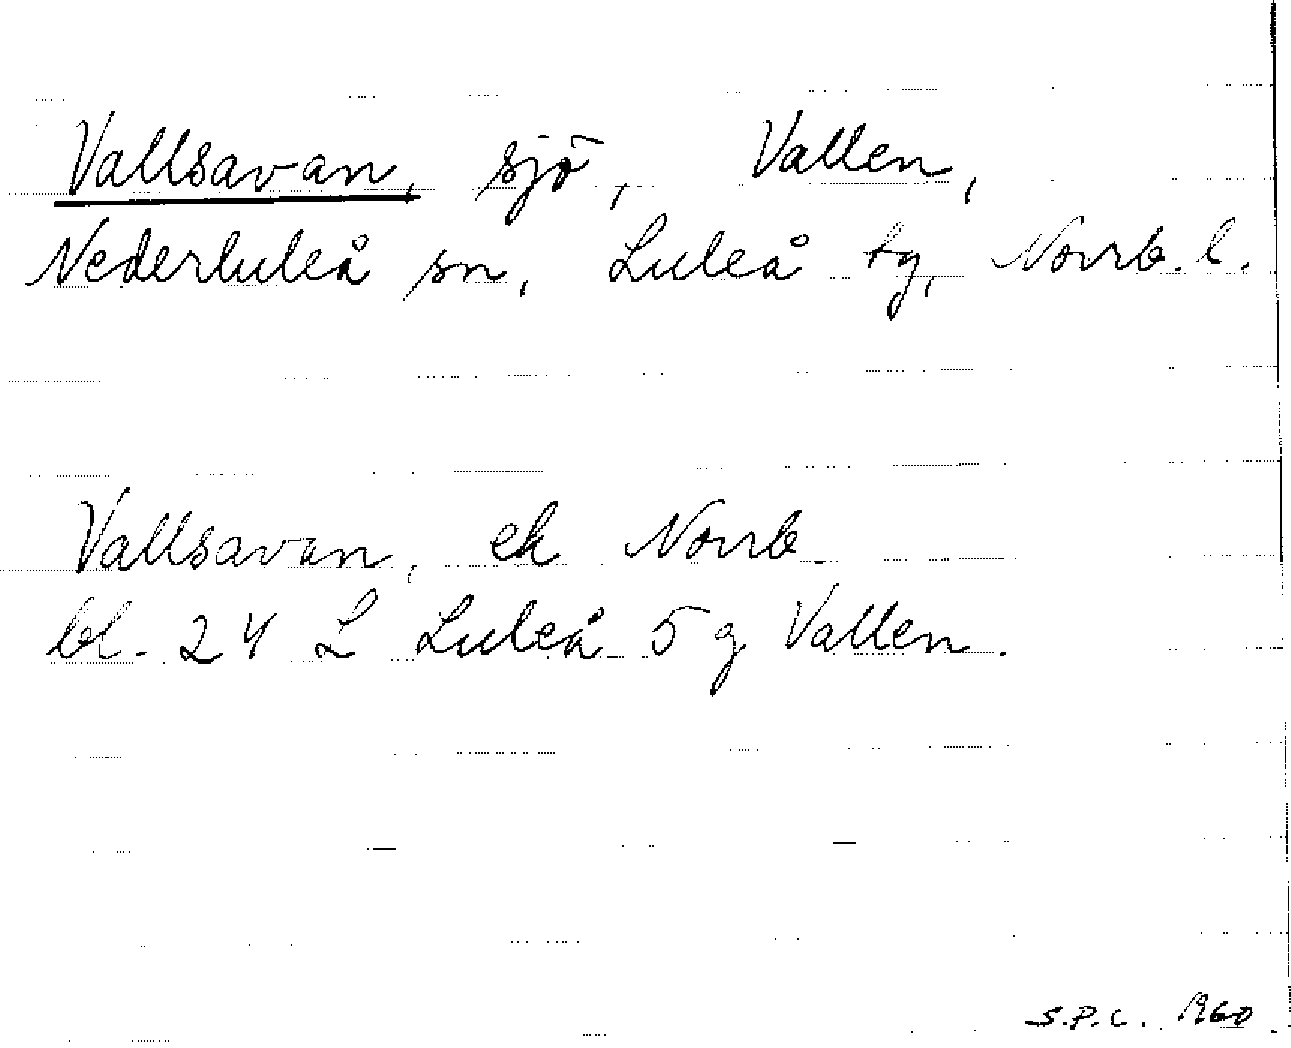 Vallsavan, sjö, Vallen,
Nederluleå sn, Luleå tg, Norrb. l.
Vallsavan, ek Norrb
bl. 24 L Luleå 5 g Vallen.
S.P.C. 1960